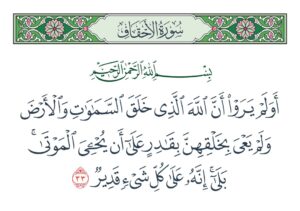 سُورَةُ الأَحْقَافِ
بِسْمِ اللَّهِ الرَّحْمَٰنِ الرَّحِيمِ
أَوَلَمْ يَرَوْا أَنَّ اللَّهَ الَّذِي خَلَقَ السَّمَٰوَٰتِ وَالْأَرْضَ
وَلَمْ يَعْيَ بِخَلْقِهِنَّ بِقَٰدِرٍ عَلَىٰ أَن يُحْۦِيَ الْمَوْتَىٰ ۚ
بَلَىٰ إِنَّهُ عَلَىٰ كُلِّ شَيْءٍ قَدِيرٌ ٣٣